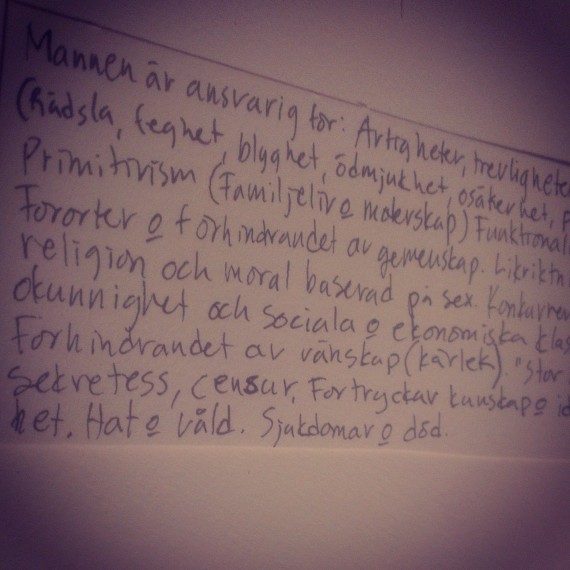 Mannen är ansvarig för: Artigheter, trevlighete
(Rädsla, feghet, blyghet, ödmjukhet, osäkerhet, p
Primitivism (Familjeliv o moderskap) Funktional
Fororter o förhindrandet av gemenskap. Likriktn
religion och moral baserad på sex. Konkurren
okunnighet och sociala o ekonomiska klas
Förhindrandet av vänskap (kärlek). "Stor
sekretess, censur, Förtryckar kunskap o id
het. Hat o våld. Sjukdomar o död.